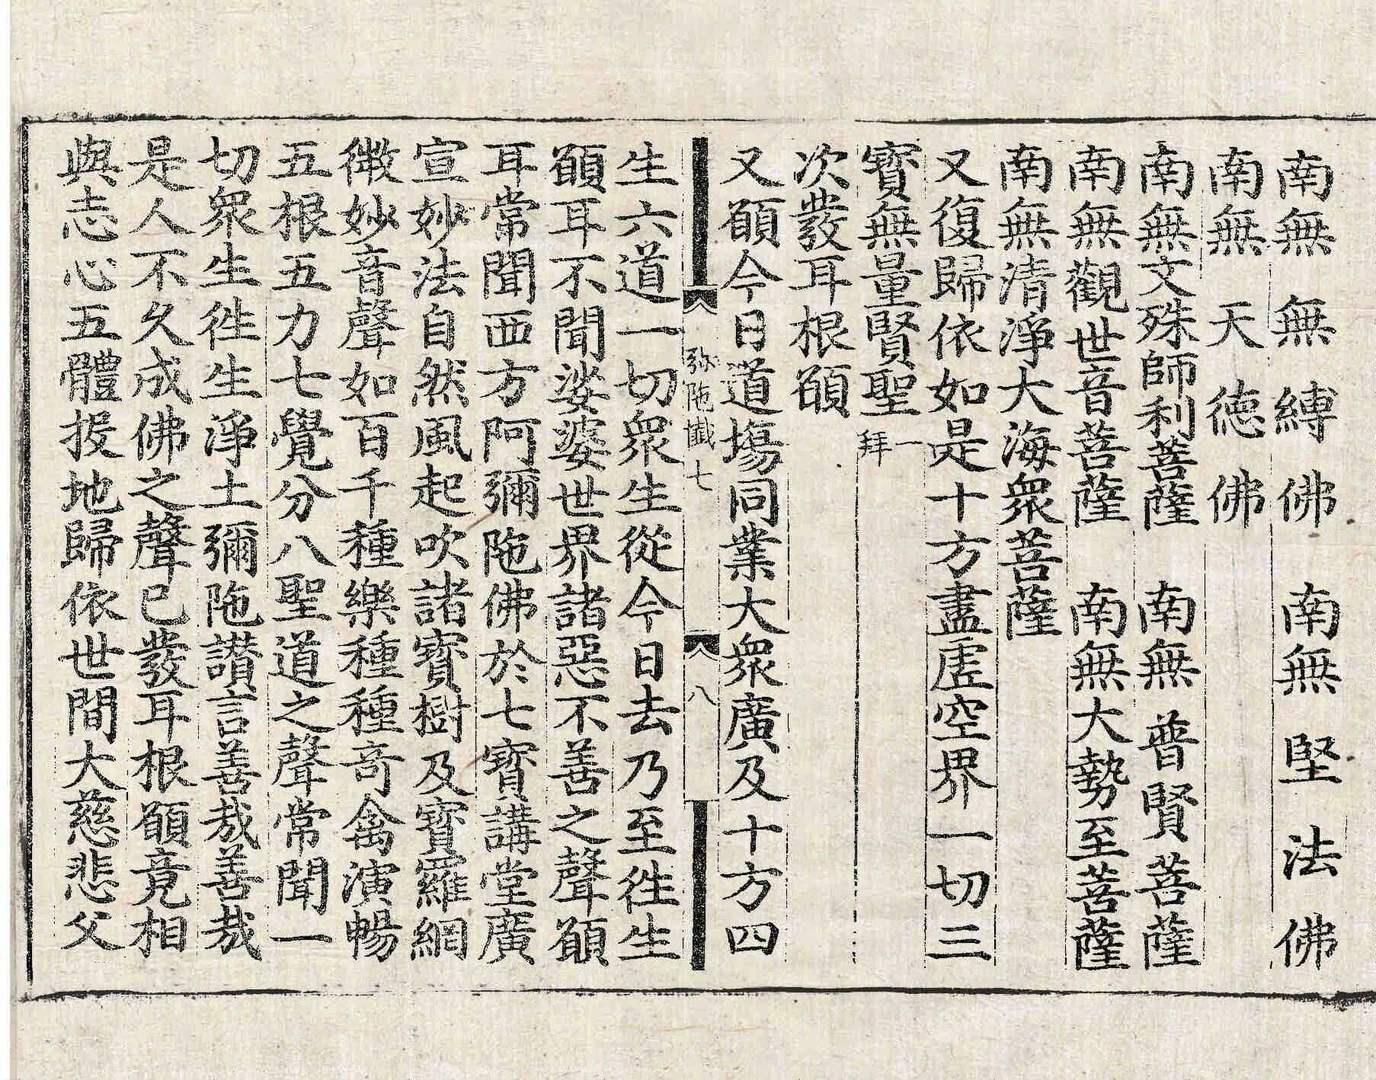 南無無縛佛　南無堅法佛
南無天德佛
南無文殊師利菩薩　南無普賢菩薩
南無觀世音菩薩　南無大勢至菩薩
南無清淨大海衆菩薩
又復歸依如是十方盡虛空界一切三
寶無量賢聖一拜
次發耳根願
又願今日道場同業大衆廣及十方四
弥陁懺七　八
生六道一切衆生從今日去乃至徃生
願耳不聞娑婆世界諸惡不善之聲願
耳常聞西方阿彌陁佛於七寶講堂廣
宣妙法自然風起吹諸寶樹及寶羅網
微妙音聲如百千種樂種種竒禽演暢
五根五力七覺分八聖道之聲常聞一
切衆生徃生淨土彌陁讃言善㢤善㢤
是人不久成佛之聲已發耳根願竟相
與志心五體投地歸依世間大慈悲父